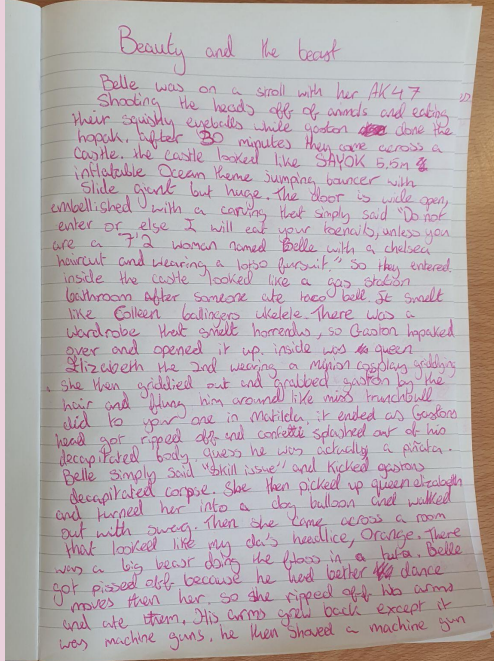 Beauty and the beast
Belle was on a scroll with her AK47
Shooting the heads off of animals and eating
their squishy eyeballs while gaston done the
hopak. after 30 minutes they come across a
castle. the castle looked like SAYOK 5,5m
inflatable Ocean theme jumping bouncer with
Slide giant but huge. The door is wide open,
embellished with a carving that simply said "Do not
enter or else I will eat your toenails, unless you
are a 7'2 woman named Belle with a chelsea
haircut and wearing a lotso fursuit." So they entered.
inside the castle looked like a gas station
bathroom after someone ate taco bell. It smelt
like Colleen ballingers ukelele. There was a
wardrobe that smelt horrendus, so Gaston hopaked
over and opened it up. inside was queen
Elizabeth the 2nd wearing a minion cosplay griddying
. she then griddied out and grabbed gaston by the
hair and flung him around like miss trunchbull
did to your one in Matilda, it ended as Gastons
head got ripped off and confetti splashed out of his
decapitated body, guess he was actually a piñata.
Belle simply said "Skill issue" and kicked gastons
decapitated corpse. She then picked up queen elizabeth
and turned her into a dog balloon and walked
out with swag. Then she came across a room
that looked like my da's headlice, Orange. There
was a big beast doing the floss in a tutu. Belle
got pissed off because he had better dance
moves then her. so she ripped off his arms
and ate them. His arms grew back except it
was machine guns. he then shoved a machine gun